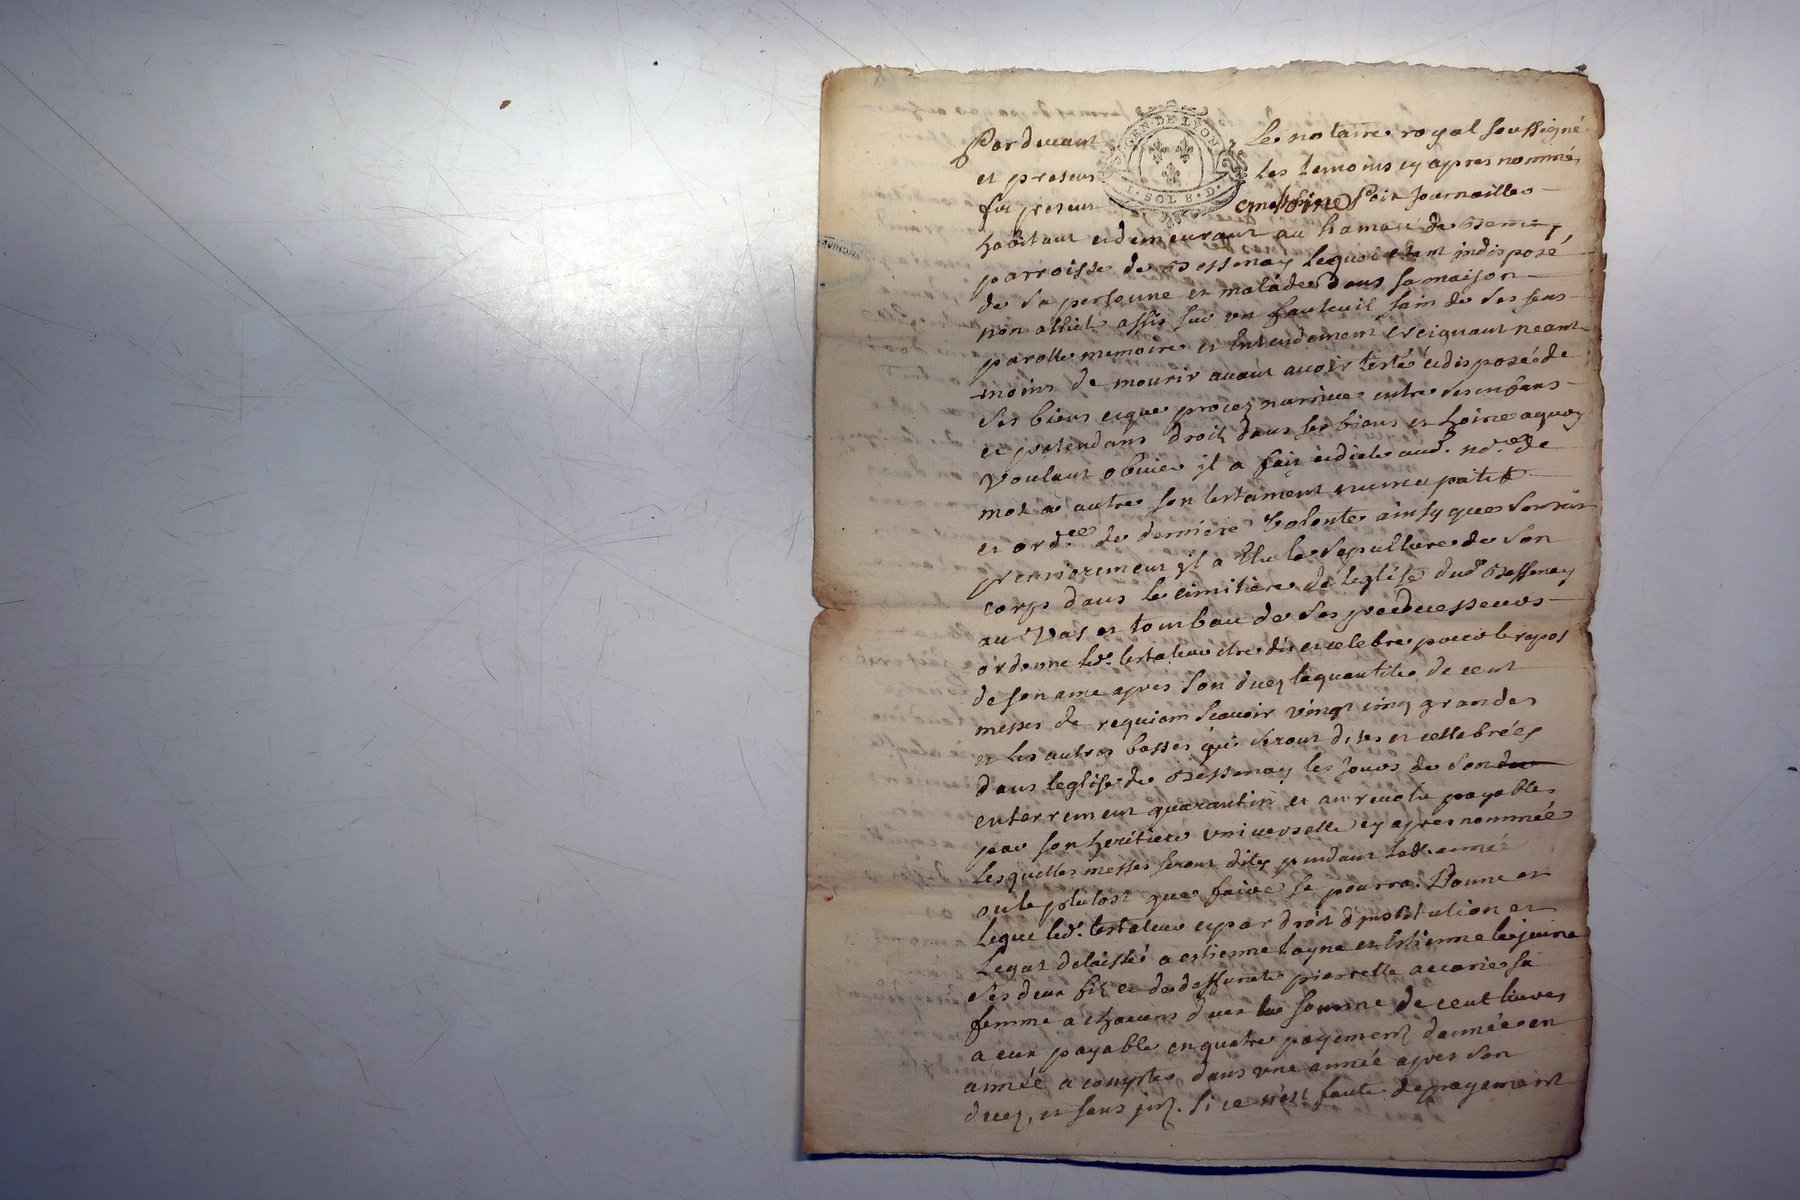 Pardevant le notaire royal soussigné
GEN · DE LYON
I · SOL 8 · D ·
et presens les temoins cy apres nommés
fut present Peix Journailler
habitant et demeurant au hamau de
parroisse de Bessenay lequel estant indisposé
de sa personne et malade dans sa maison
non allité assis sur un fauteuil sain de ses sens
parolle memoire et entendement creignant neant
moins de mourir avant avoir testé et disposé de
ses biens et que procez narrive entre ses enfans
et pretendans droit dans ses biens et hoirie a quoy
voulant obvier il a fait et dicté aud. no.re de
mot a autre son testament nuncupatif
et ord.ce de derniere volonte ainsy que sensuit
premierement il a elu la sepulture de son
corps dans le cimitiere de leglise dud. Bessenay
au vas et tombau de ses predecesseurs
ordonne led. testateur etre dit et celebre pour le repos
de son ame apres son decez la quantite de cent
messes de requiam scavoir vingt cinq grandes
et les autres basses qui seront dites et cellebrées
dans leglise de Bessenay les jours de son
enterrement quarantin et au revolu payable
par son heritiere universelle cy apres nommée
lesquelles messes seront dites pendant lad. année
ou le plutost que faire se pourra. Donne et
legue led. testateur et par droit dinstitution et
legat delaissé a estienne layne et estienne le jeune
ses deux fils et de deffunte pierrette accarie sa
femme a chacuns deux la somme de cent livres
a eux payable en quatre payement dannée en
année a compter dans une année apres son
decez, et sans int. si ce n'est faute de payement